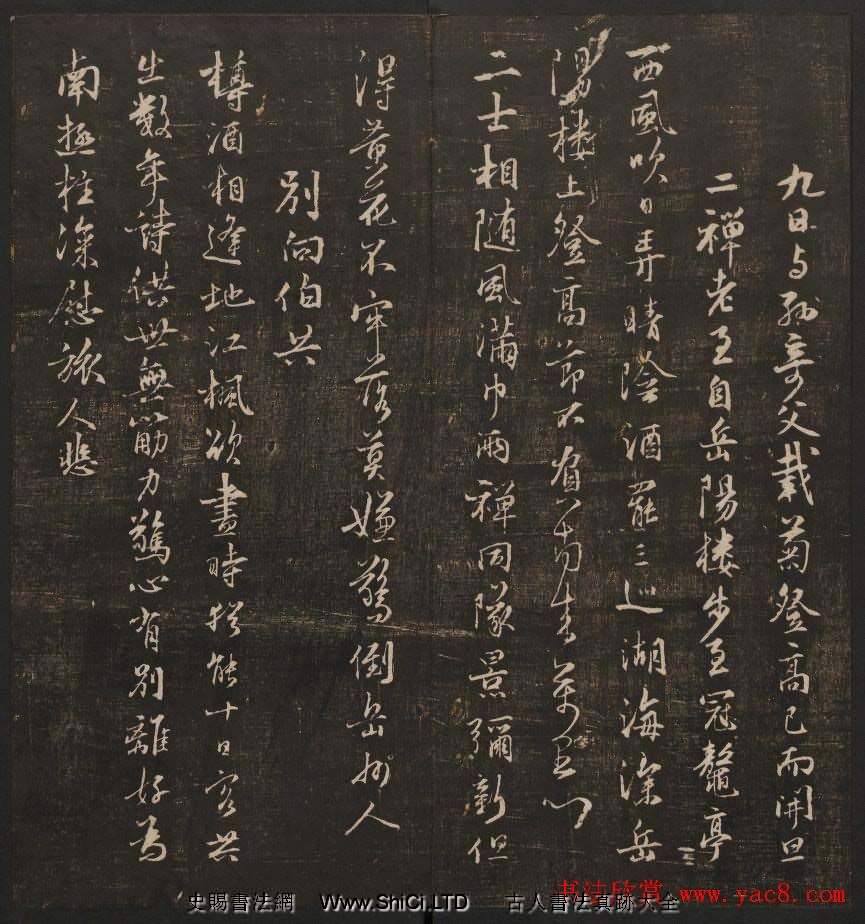 九日与孙奇父載菊登高已而開旦
二禅老至自岳陽楼步至冠鰲亭
西風吹日弄晴陰酒罷三巡湖海深岳
陽楼上登高節不負南来萬里心
二士相随風滿巾兩禅同隊景彌新但
得黄花不牢落莫嫌驚倒岳州人
别向伯共
樽酒相逢地江楓欲盡時猶能十日客共
出數年詩供世無筋力驚心有别離好為
南極柱深慰旅人悲
史賜書法網 Www.ShiCi.LTD 古人書法真跡大全
书法欣赏 www.yac8.com